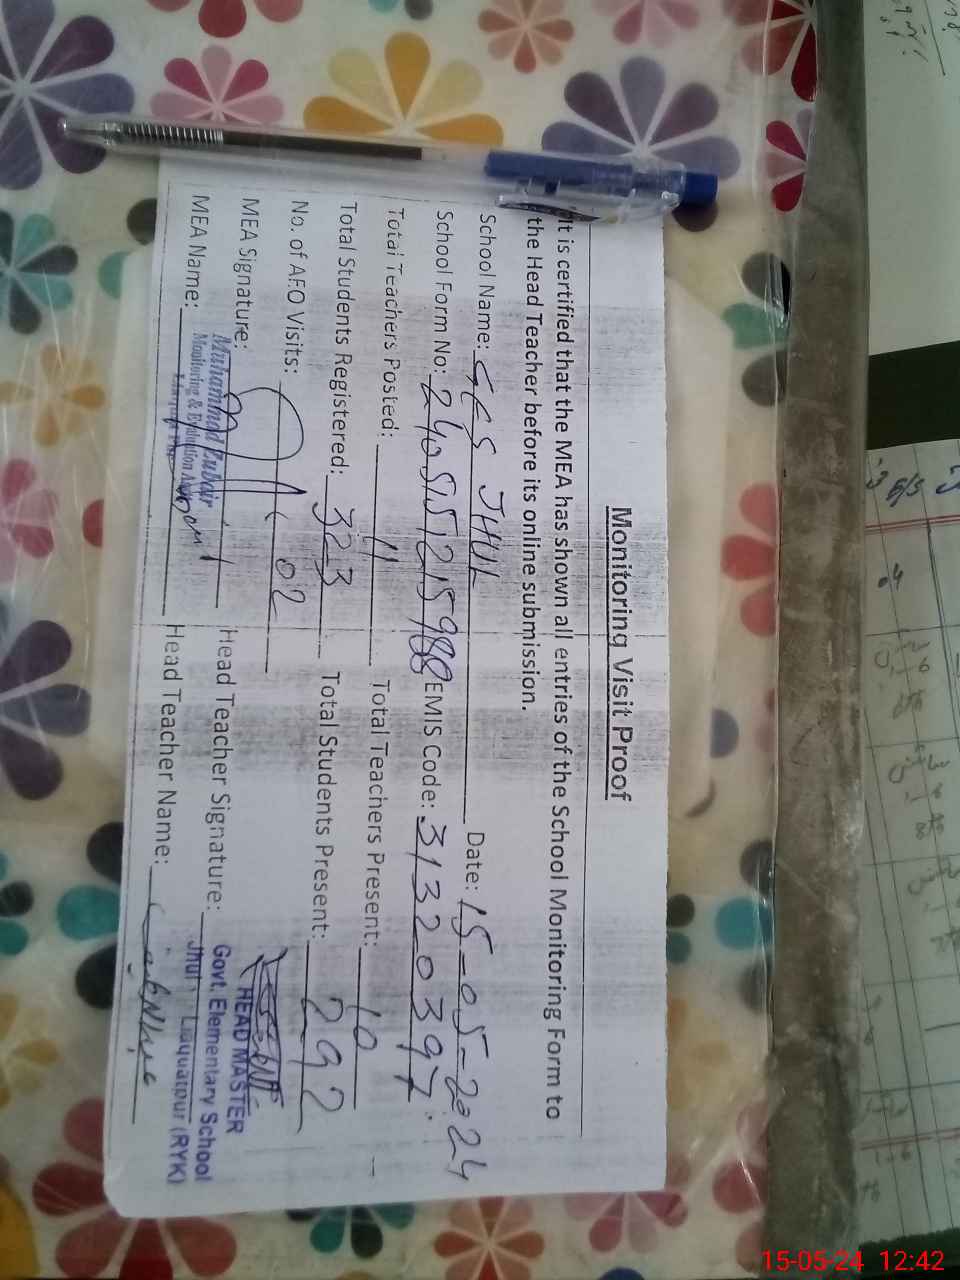 Monitoring Visit Proof
It is certified that the MEA has shown all entries of the School Monitoring Form to
the Head Teacher before its online submission.
School Name: GES JHUL Date: 15-05-2024
School Form No: 240515215988 EMIS Code: 31320397
Total Teachers Posted: 11 Total Teachers Present: 10
Total Students Registered: 323 Total Students Present: 292
No. of AEO Visits: 02
MEA Signature: Head Teacher Signature:
MEA Name: Head Teacher Name:
Muhammad Zubair
Monitoring & Evaluation
HEAD MASTER
Govt. Elementary School
Jhul, Liaquatpur (RYK)
15-05-24 12:42